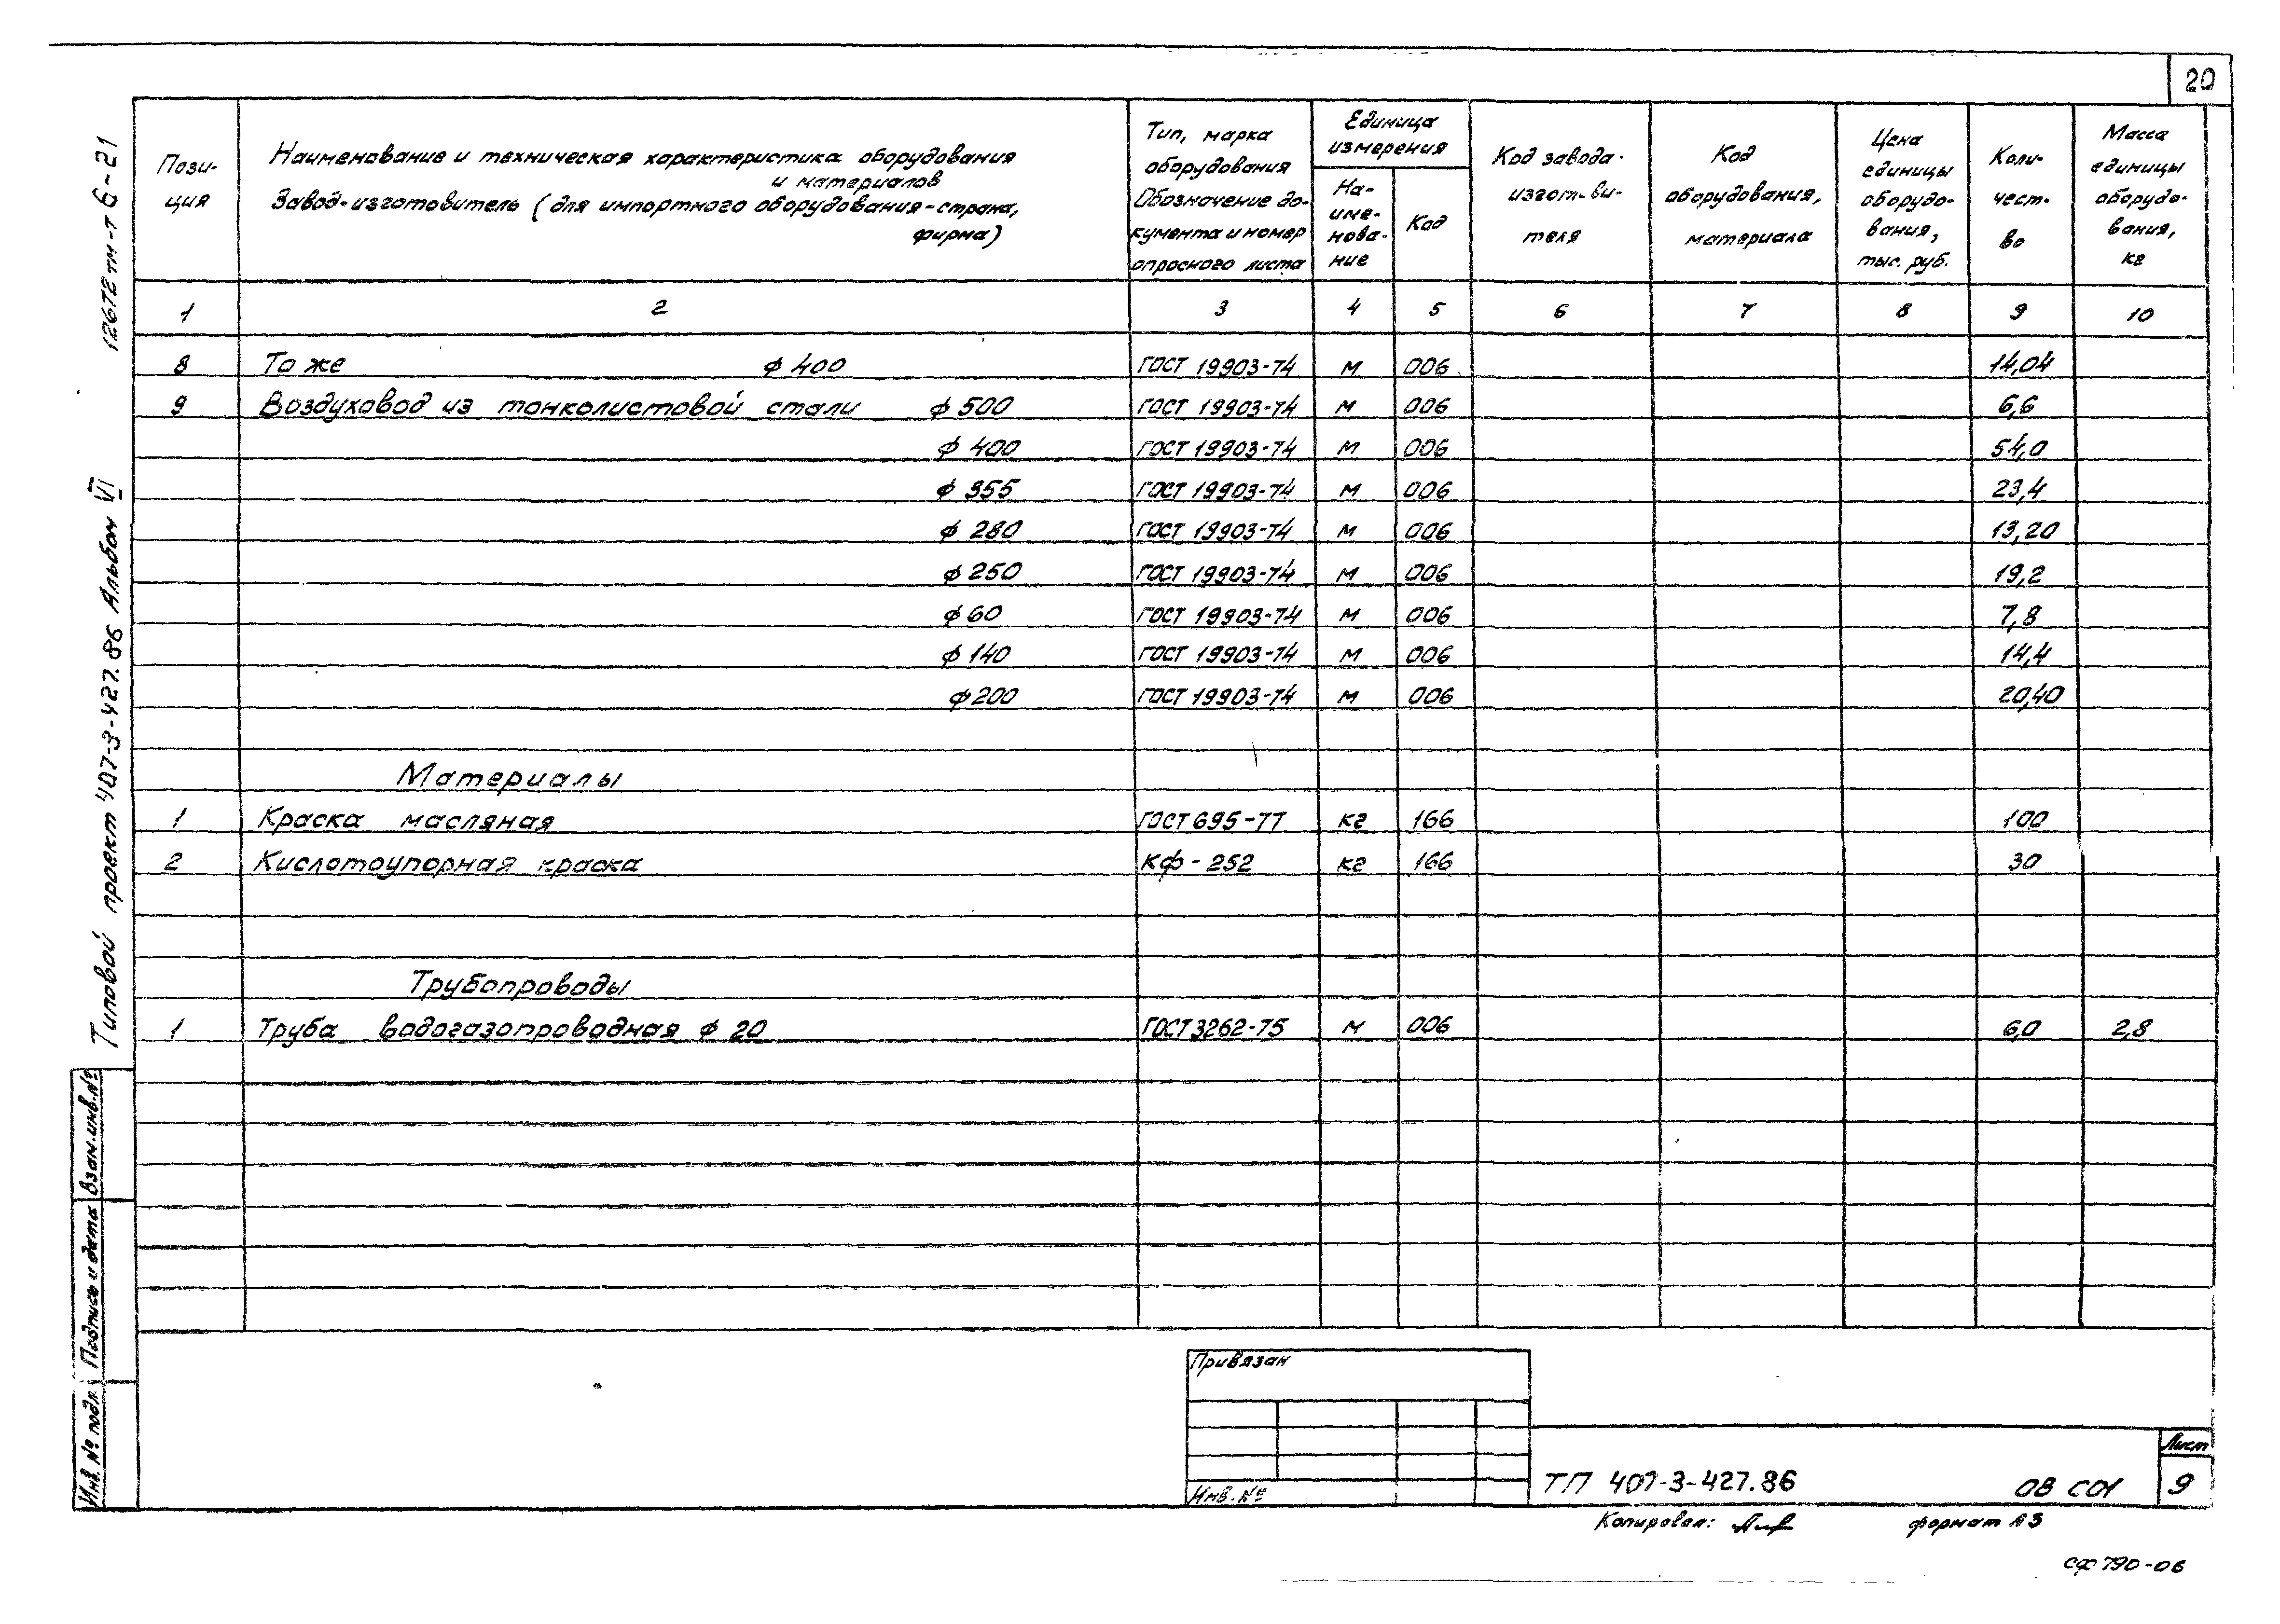 20
12672тм-т6-21
Типовой проект 407-3-427.86 Альбом VI
Пози-
ция
Наименование и техническая характеристика оборудования
и материалов
Завод-изготовитель (для импортного оборудования-страна,
фирма)
Тип, марка
оборудования
Обозначение до-
кумента и номер
опросного листа
Единица
измерения
На-
име-
нова-
ние
Код
Код завода-
изготови-
теля
Код
оборудования,
материала
Цена
единицы
оборудо-
вания,
тыс. руб.
Коли-
чест-
во
Масса
единицы
оборудо-
вания,
кг
1 2 3 4 5 6 7 8 9 10
8 То же ф 400 ГОСТ 19903-74 м 006 14,04
9 Воздуховод из тонколистовой стали ф 500 ГОСТ 19903-74 м 006 6,6
ф 400 ГОСТ 19903-74 м 006 54,0
ф 355 ГОСТ 19903-74 м 006 23,4
ф 280 ГОСТ 19903-74 м 006 13,20
ф 250 ГОСТ 19903-74 м 006 19,2
ф 60 ГОСТ 19903-74 м 006 7,8
ф 140 ГОСТ 19903-74 м 006 14,4
ф 200 ГОСТ 19903-74 м 006 20,40
Материалы
1 Краска масляная ГОСТ 695-77 кг 166 100
2 Кислотоупорная краска КФ-252 кг 166 30
Трубопроводы
1 Труба водогазопроводная ф 20 ГОСТ 3262-75 м 006 6,0 2,8
Взам.инв.№
Подпись и дата
Инв. № подл.
Привязан
Инв. №
ТП 407-3-427.86 ОВ СО1
Лист
9
Копировал: формат А3
сф 790-06